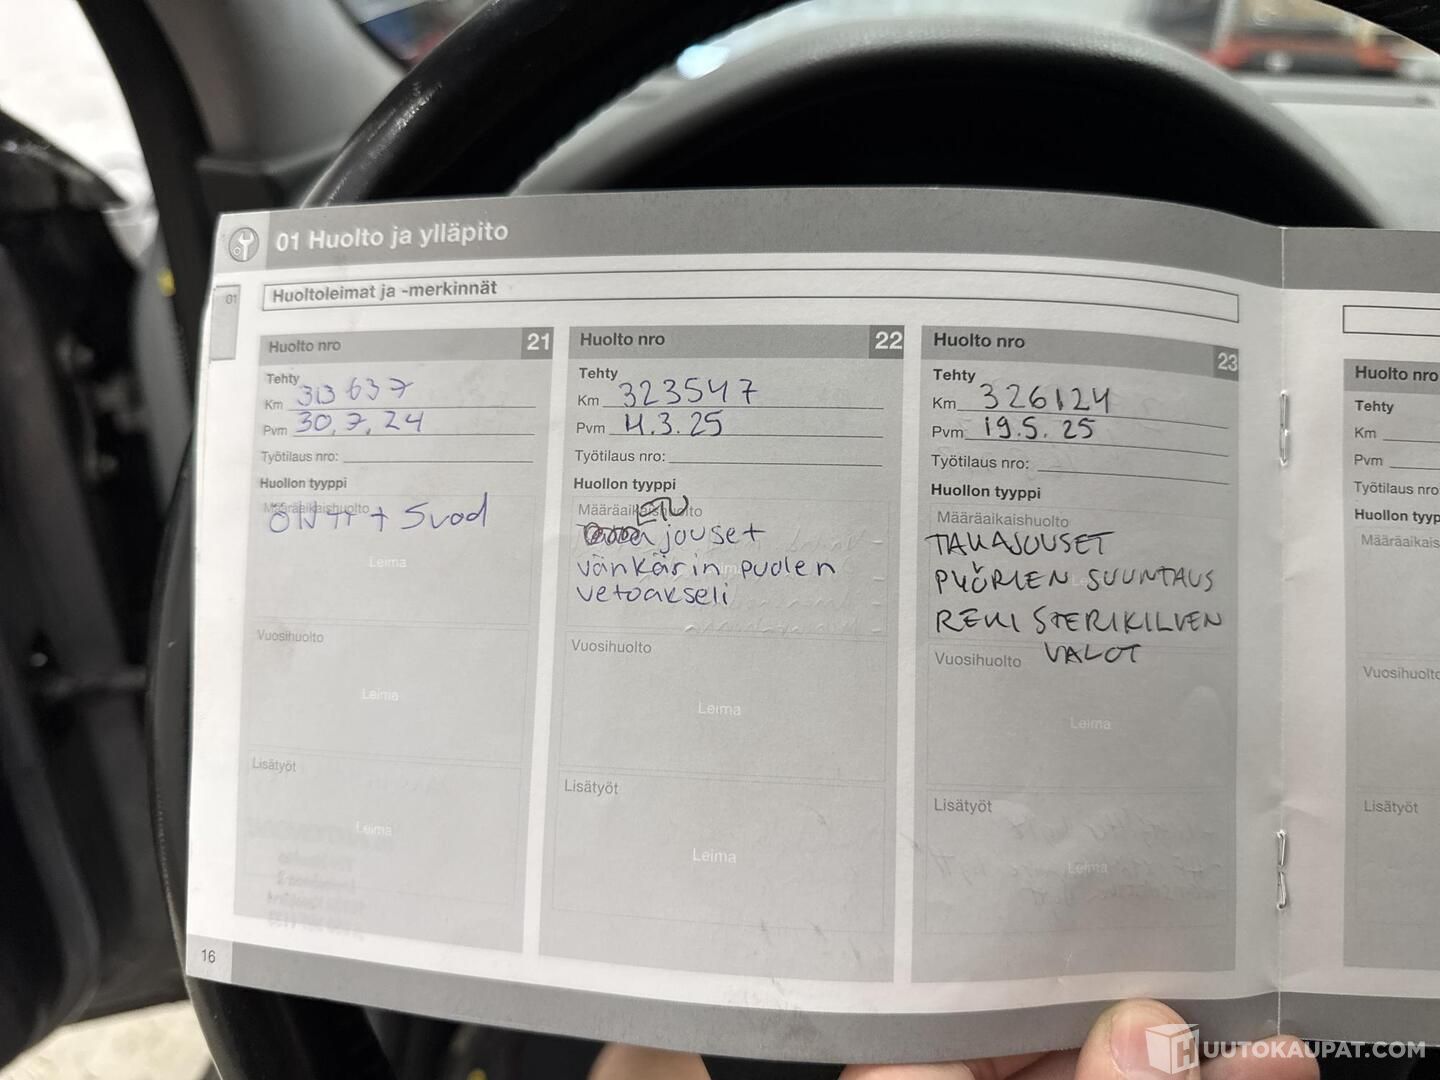 01 Huolto ja ylläpito
01
Huoltoleimat ja -merkinnät
Huolto nro 21
Tehty
Km 313 637
Pvm 30.7.24
Työtilaus nro:
Huollon tyyppi
Määräaikaishuolto
Leima
Vuosihuolto
Leima
Lisätyöt
Leima
Huolto nro 22
Tehty
Km 323547
Pvm 4.3.25
Työtilaus nro:
Huollon tyyppi
Määräaikaishuolto
ETU
jouset
vänkärin puolen
vetoakseli
Vuosihuolto
Leima
Lisätyöt
Leima
Huolto nro 23
Tehty
Km 326124
Pvm 19.5.25
Työtilaus nro:
Huollon tyyppi
Määräaikaishuolto
TAKAJOUSET
PYÖRIEN SUUNTAUS
REKISTERIKILVEN
VALOT
Vuosihuolto
Leima
Lisätyöt
Leima
Huolto nro
Tehty
Km
Pvm
Työtilaus nro
Huollon typp
Määräaikais
Vuosihuolto
Lisätyöt
16
HUUTOKAUPAT.COM